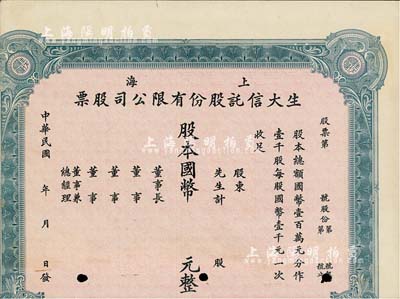 上海
生大信託股份有限公司股票
股票第 號股份第
股本總額國幣壹百萬元分作
壹千股每股國幣壹千元一次
收足
股東 先生計 股
股本國幣 元整
董事長
董事
董事
董事
董事兼總經理
中華民國 年 月 日發